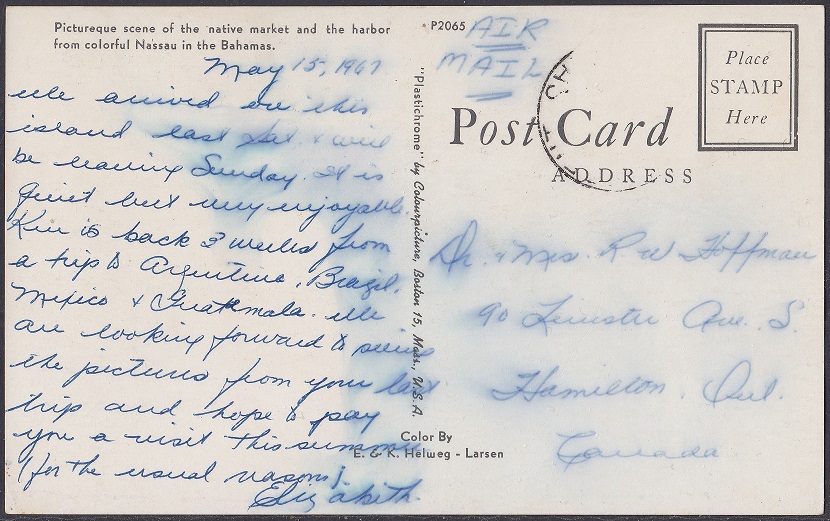 Picturesque scene of the native market and the harbor
from colorful Nassau in the Bahamas.
May 15, 1967
We arrived on this
island last Sat. & will
be leaving Sunday. It is
quiet but very enjoyable.
Ken is back 3 weeks from
a trip to Argentina, Brazil,
Mexico & Guatemala. We
are looking forward to seeing
the pictures from your last
trip and hope to pay
you a visit this summer
(for the usual reasons).
Elizabeth.
"Plastichrome" by Colourpicture, Boston 15, Mass., U.S.A.
Color By
E. & K. Helweg - Larsen
P2065
AIR
MAIL
Place
STAMP
Here
Post Card
ADDRESS
Dr. & Mrs. R W Hoffman
90 Ave. S.
Hamilton, Ont.
Canada